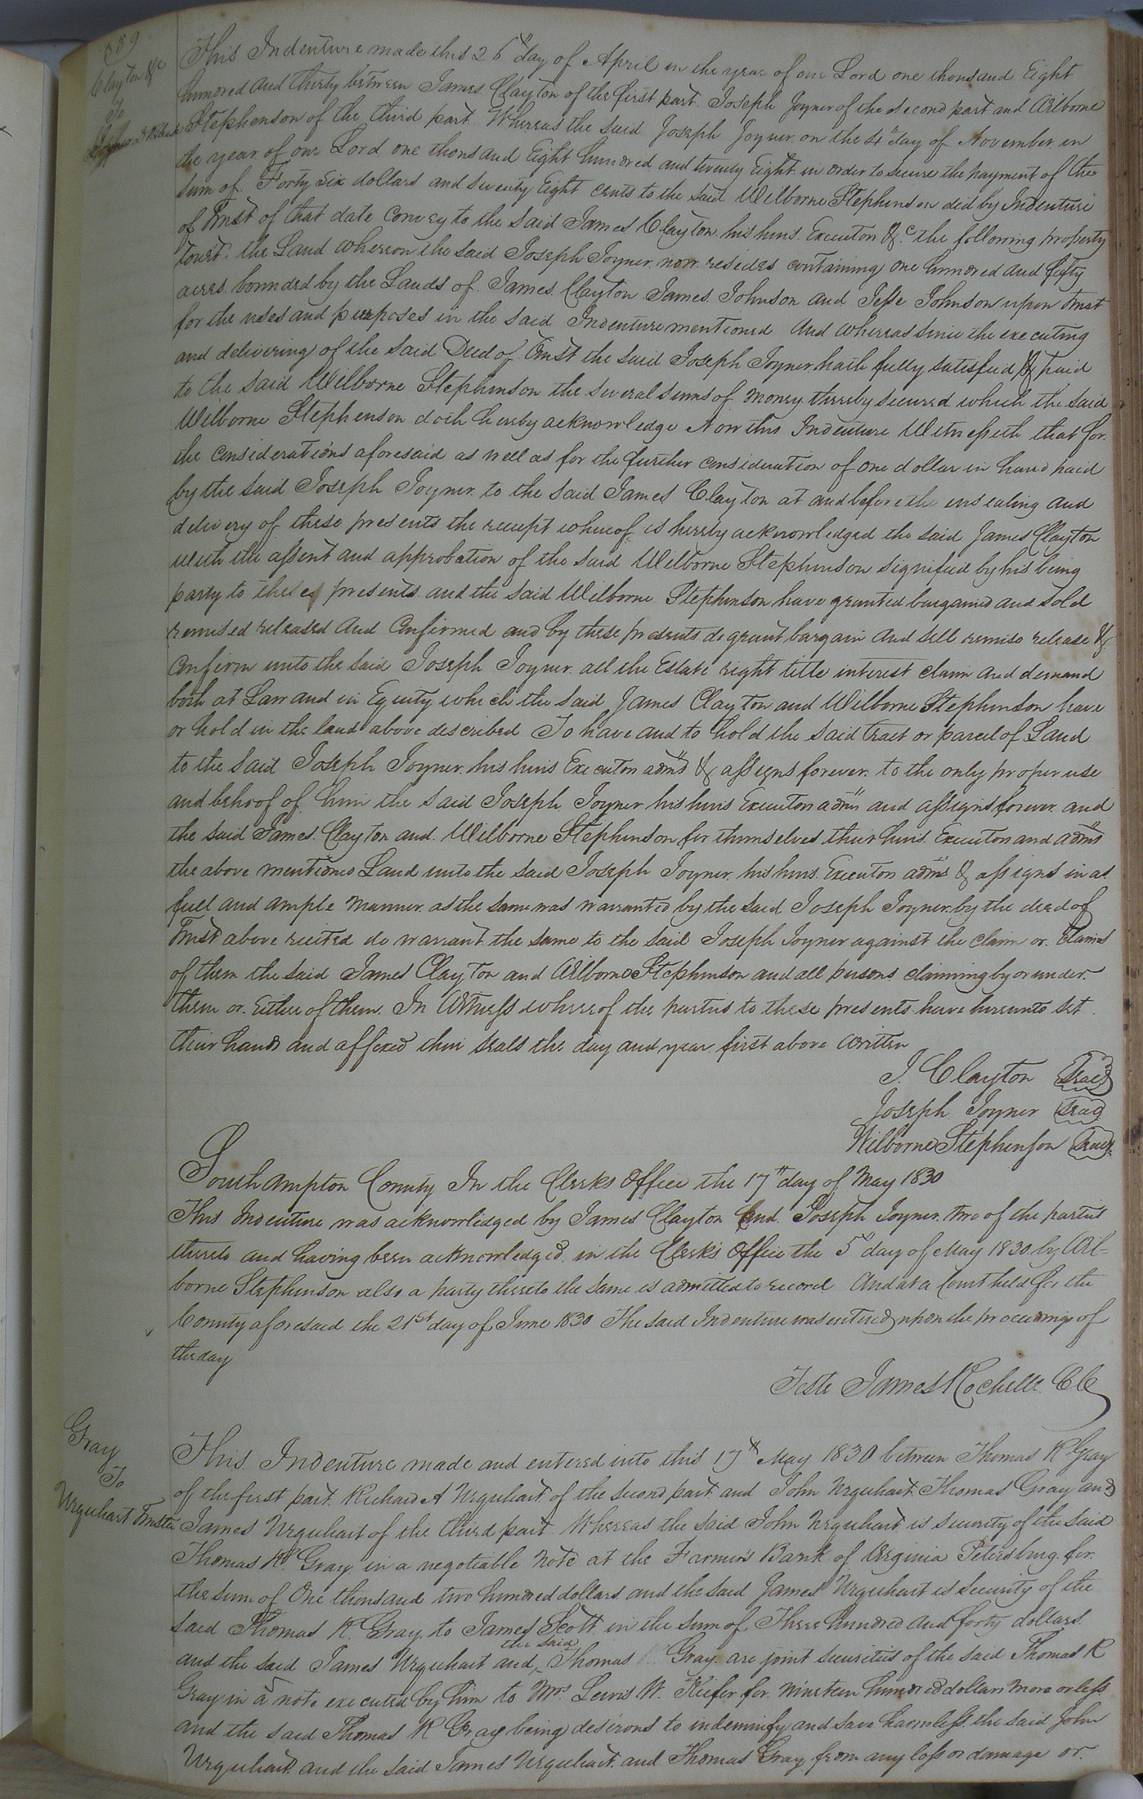 389
Clayton &c
To
This Indenture made this 26th day of April in the year of our Lord one thousand Eight
hundred and thirty between James Clayton of the first part Joseph Joyner of the second part and Wilborne
Stephenson of the third part Whereas the said Joseph Joyner on the 4th day of November in
the year of our Lord one thousand Eight hundred and twenty Eight in order to secure the payment of the
sum of Forty six dollars and seventy Eight cents to the said Wilborne Stephenson did by Indenture
of Trust of that date convey to the said James Clayton his heirs Executors &c the following property
towit: the Land whereon the said Joseph Joyner now resides containing one hundred and fifty
acres bounded by the Lands of James Clayton James Johnson and Jesse Johnson upon trust
for the uses and purposes in the said Indenture mentioned And whereas since the executing
and delivering of the said Deed of Trust the said Joseph Joyner hath fully satisfied & paid
to the said Wilborne Stephenson the several sums of money thereby secured which the said
Wilborne Stephenson doth hereby acknowledge Now this Indenture Witnesseth that for
the considerations aforesaid as well as for the further consideration of one dollar in hand paid
by the said Joseph Joyner to the said James Clayton at and before the ensealing and
delivery of these presents the receipt whereof is hereby acknowledged the said James Clayton
with the assent and approbation of the said Wilborne Stephenson signified by his being
party to these presents and the said Wilborne Stephenson have granted bargained and sold
remised released And Confirmed and by these presents do grant bargain and sell remise release &
Confirm unto the said Joseph Joyner all the Estate right title interest claim and demand
both at Law and in Equity which the said James Clayton and Wilborne Stephenson have
or hold in the land above described To have and to hold the said tract or parcel of Land
to the said Joseph Joyner his heirs Executors adm's & assigns forever to the only proper use
and behoof of him the said Joseph Joyner his heirs Executors adm's and assigns forever and
the said James Clayton and Wilborne Stephenson for themselves their heirs Executors and adm's
the above mentioned Land unto the said Joseph Joyner his heirs Executors adm's & assigns in as
full and ample manner as the same was warranted by the said Joseph Joyner by the deed of
Trust above recited do warrant the same to the said Joseph Joyner against the claim or Claims
of them the said James Clayton and Wilborne Stephenson and all persons claiming by or under
them or Either of them. In Witness whereof the parties to these presents have hereunto set
their hands and affixed their seals the day and year first above written
J. Clayton Seal
Joseph Joyner Seal
Wilborne Stephenson Seal
Southampton County In the Clerks Office the 17th day of May 1830
This Indenture was acknowledged by James Clayton And Joseph Joyner two of the parties
thereto and having been acknowledged in the Clerk's Office the 5th day of May 1830 by Wil-
borne Stephenson also a party thereto the same is admitted to record And at a Court held for the
County aforesaid the 21st day of June 1830 The said Indenture was entered upon the proceedings of
the day
Teste James Rochelle CC
Gray
To
Urquhart Trustee
This Indenture made and entered into this 17th May 1830 between Thomas R Gray
of the first part Richard A Urquhart of the second part and John Urquhart Thomas Gray and
James Urquhart of the third part Whereas the said John Urquhart is security of the said
Thomas R Gray in a negotiable Note at the Farmers Bank of Virginia Petersburg for
the sum of One thousand two hundred dollars and the said James Urquhart is security of the
said Thomas R. Gray to James Scott in the sum of Three hundred and forty dollars
and the said James Urquhart and the said Thomas Gray are joint securities of the said Thomas R
Gray in a note executed by him to Mrs Lewis W. Kiefer for Nineteen hundred dollars more or less
and the said Thomas R Gray being desirous to indemnify and save harmless the said John
Urquhart and the said James Urquhart and Thomas Gray from any loss or damage or